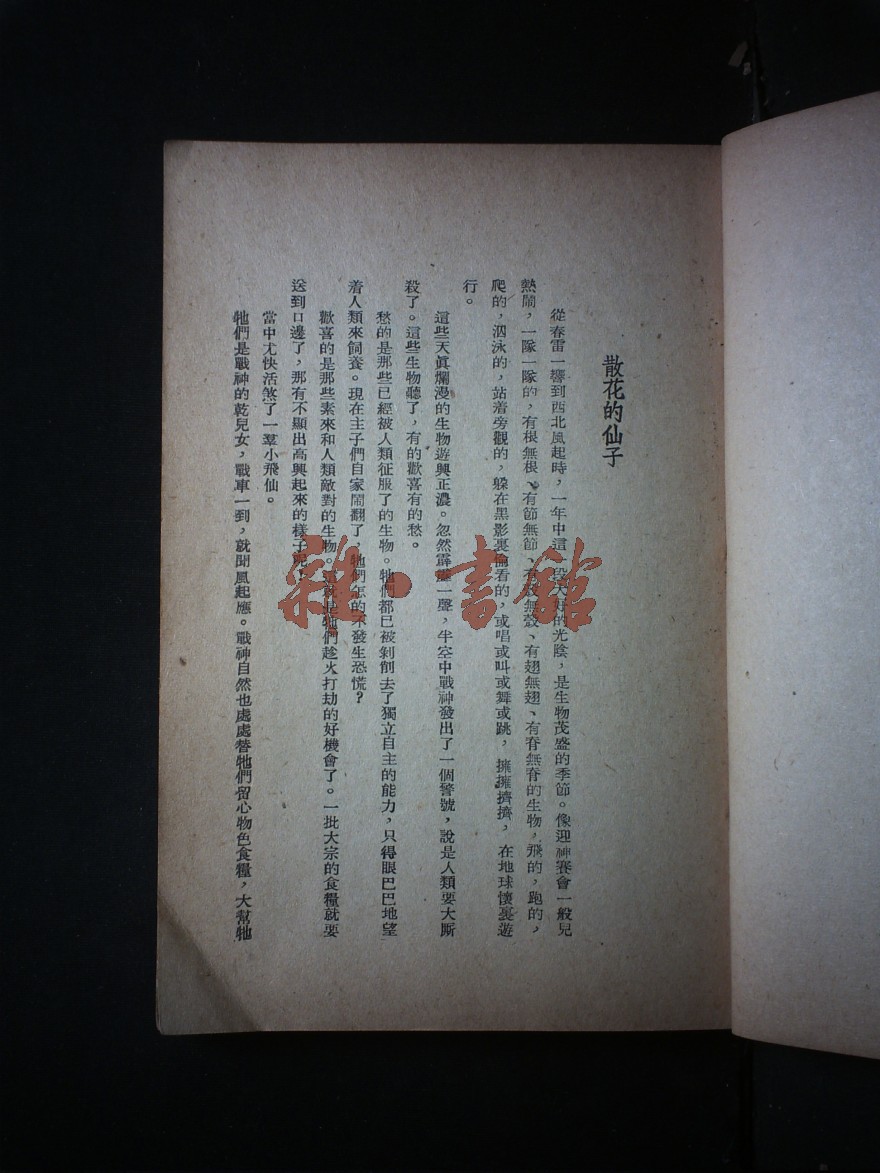 散花的仙子
從春雷一響到西北風起時，一年中這一段大好的光陰，是生物茂盛的季節。像迎神賽會一般兒
熱鬧，一隊一隊的，有根無根、有節無節、有殼無殼、有翅無翅、有脊無脊的生物，飛的，跑的，
爬的，泅泳的，站着旁觀的，躲在黑影裏偷看的，或唱或叫或舞或跳，擁擁擠擠，在地球懷裏遊
行。
這些天眞爛漫的生物遊興正濃。忽然霹靂一聲，半空中戰神發出了一個警號，說是人類要大厮
殺了。這些生物聽了，有的歡喜有的愁。
愁的是那些已經被人類征服了的生物。牠們都已被剝削去了獨立自主的能力，只得眼巴巴地望
着人類來飼養。現在主子們自家鬧翻了，牠們怎的不發生恐慌？
歡喜的是那些素來和人類敵對的生物。這就是牠們趁火打劫的好機會了。一批大宗的食糧就要
送到口邊了，那有不顯出高興起來的樣子呢！
當中尤快活煞了一羣小飛仙。
牠們是戰神的乾兒女，戰車一到，就聞風起應。戰神自然也處處替牠們留心物色食糧，大幫牠
雜·書館